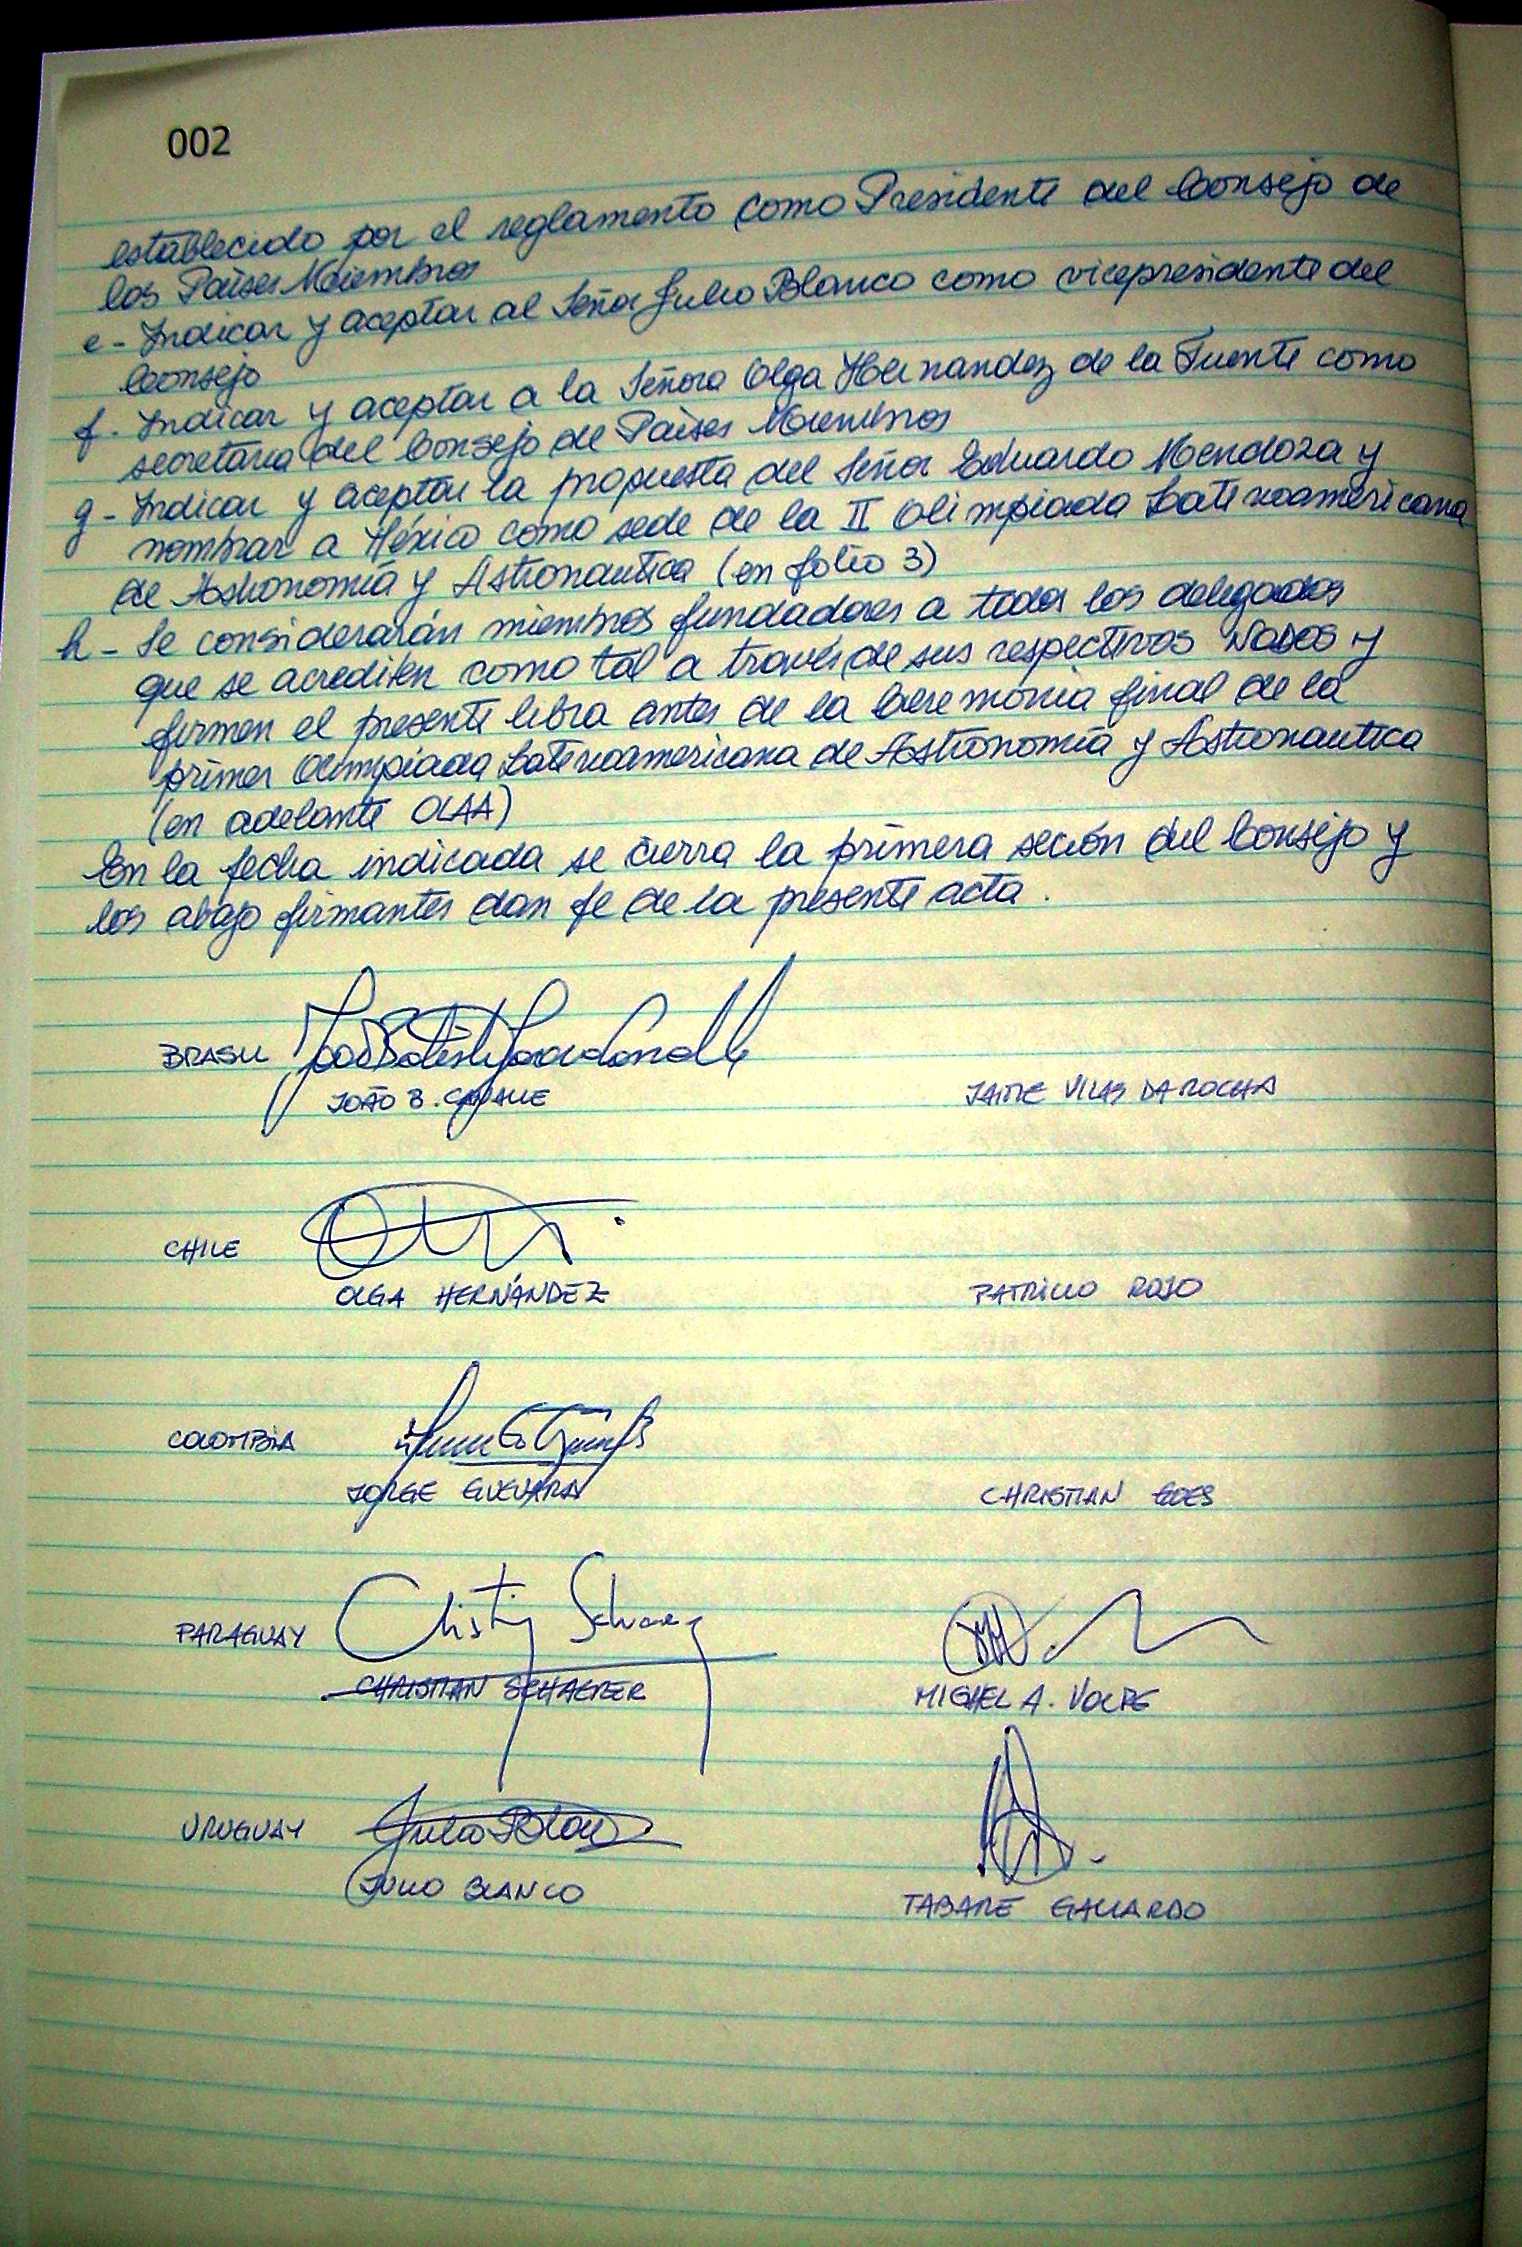 002
establecido por el reglamento como Presidente del Consejo de
los Países Miembros
e- Indicar y aceptar al Señor Julio Blanco como vicepresidente del
Consejo
f- Indicar y aceptar a la Señora Olga Hernandez de la Fuente como
secretaria del Consejo de Países Miembros
g- Indicar y aceptar la propuesta del Señor Eduardo Mendoza y
nombrar a México como sede de la II Olimpiada Latinoamericana
de Astronomía y Astronautica (en folio 3)
h- Se considerarán miembros fundadores a todos los delegados
que se acrediten como tal a través de sus respectivos NODOS y
firmen el presente libro antes de la Ceremonia final de la
primer Olimpiada Latinoamericana de Astronomía y Astronautica
(en adelante OLAA)
En la fecha indicada se cierra la primera seción del Consejo y
los abajo firmantes dan fe de la presente acta.
BRASIL
JOÃO B. CANALLE JAIME VILAS DA ROCHA
CHILE
OLGA HERNÁNDEZ PATRICIO ROJO
COLOMBIA
JORGE GUEVARA CHRISTIAN GOES
PARAGUAY
CHRISTIAN SCHAERER MIGUEL A. VOLPE
URUGUAY Julio Blanco
JULIO BLANCO TABARE GALLARDO